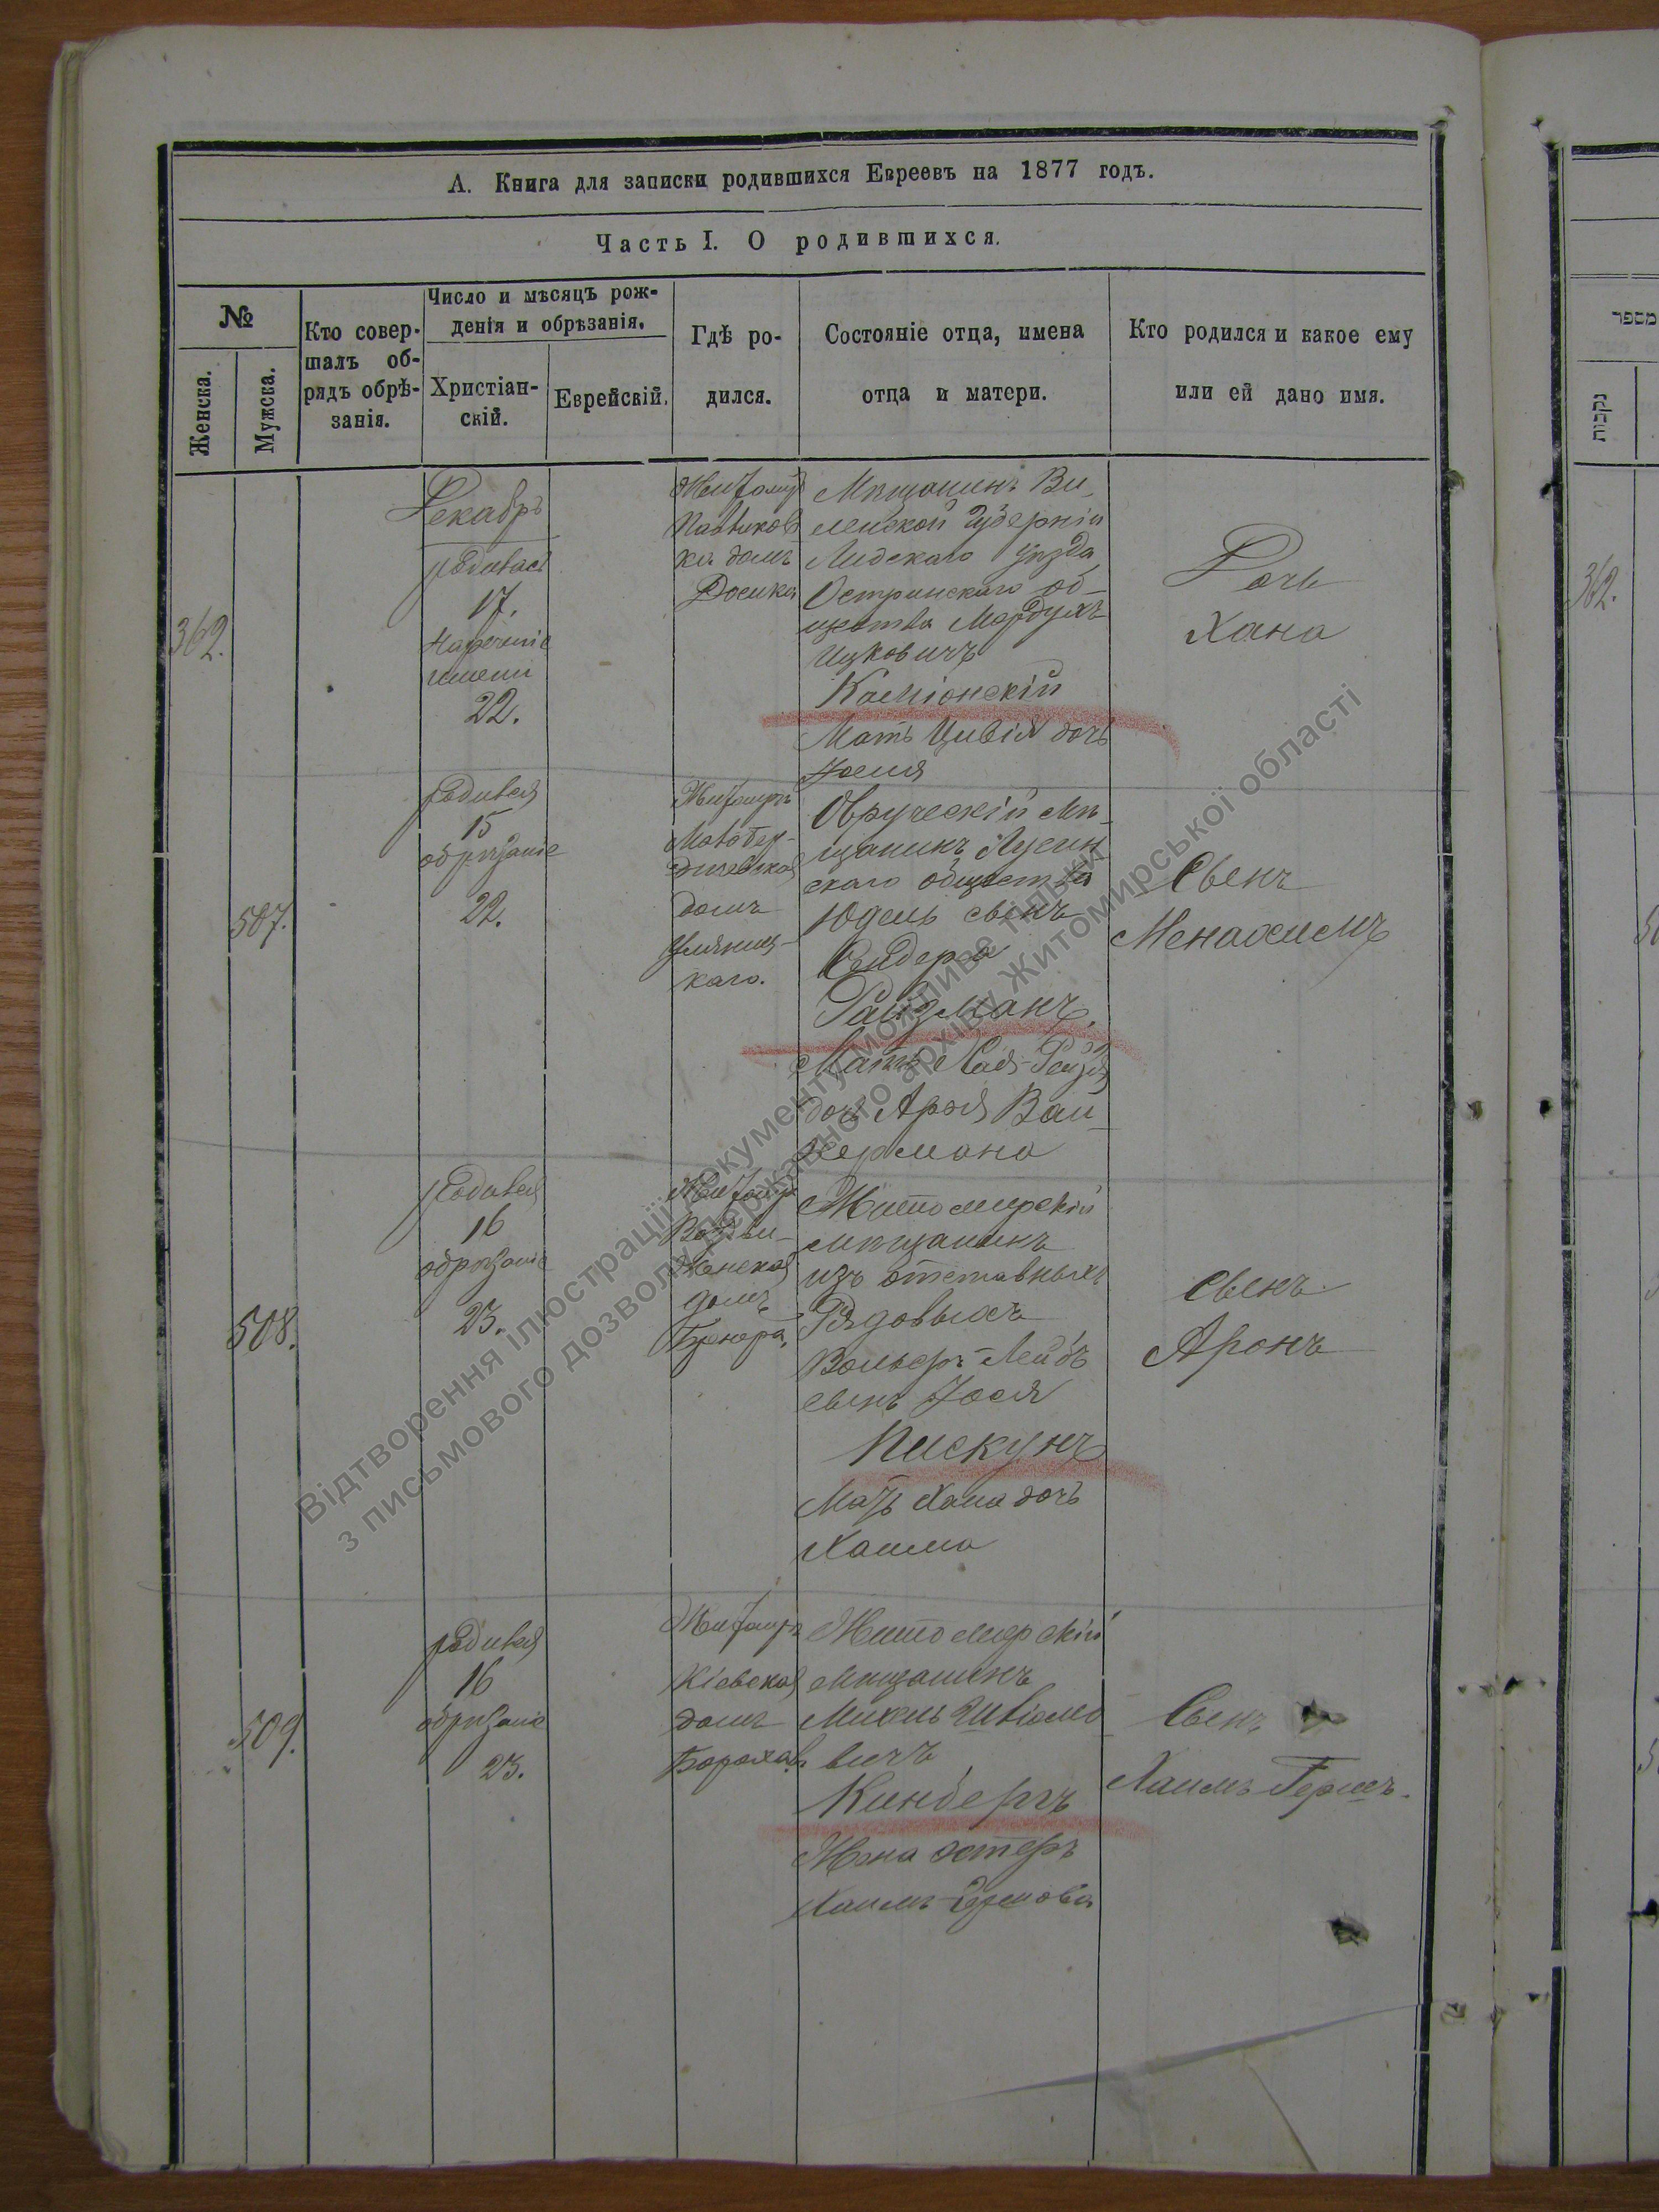 А. Книга для записки родившихся Евреевъ на 1877 годъ.
Часть I. О родившихся.
№
Женска.
Мужска.
Кто совер-
шалъ об-
рядъ обрѣ-
занія.
Число и мѣсяцъ рож-
денія и обрѣзанія.
Христіан-
скій.
Еврейскій.
Гдѣ ро-
дился.
Состояніе отца, имена
отца и матери.
Кто родился и какое ему
или ей дано имя.
362.
Декабрь
родилась
17.
нареченіе
имени
22.
Житомир
домъ
Мѣщанинъ Ви-
ленской Губерніи
Лидскаго Уѣзда
Остринскаго об-
щества Мордухъ
Ицковичъ
Каміонскій
Мать Цивія дочь
Дочь
Хана
507.
родился
15
обрѣзаніе
22.
Житомиръ
Новобер-
дичевская
домъ
каго.
Овручскій мѣ-
щанинъ
скаго общества
Юдель сынъ
Сендера
Райзманъ.
Мать Хая-Рейзя
дочь Арья Вай-
хермана
Сынъ
Менахимъ
508.
родился
16
обрѣзаніе
23.
Житомиръ
Воздви-
женская
домъ
Житомирскій
мѣщанинъ
изъ отставныхъ
Рядовыхъ
Вольфъ-Лейбъ
сынъ Іося
Пискунъ
Мать Хана дочь
Хаима
Сынъ
Аронъ
509.
родился
16
обрѣзаніе
23.
Житомиръ
Кіевская
домъ
Житомирскій
Мѣщанинъ
Михель
вичъ
Кинбергъ
Жена Эстеръ
Сынъ
Хаимъ Гершъ.
מספר
נקבות
362.
Відтворення ілюстрації документу можливе тільки
з письмового дозволу Державного архіву Житомирської області